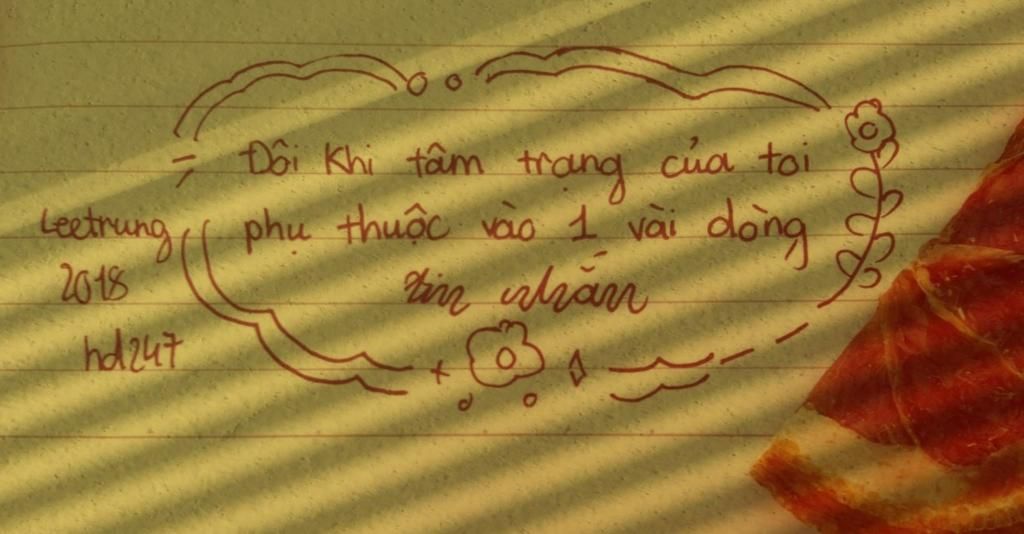 Đôi Khi tâm trạng của toi
phụ thuộc vào 1 vài dòng
tin nhắn
Leetrung
2018
hd247